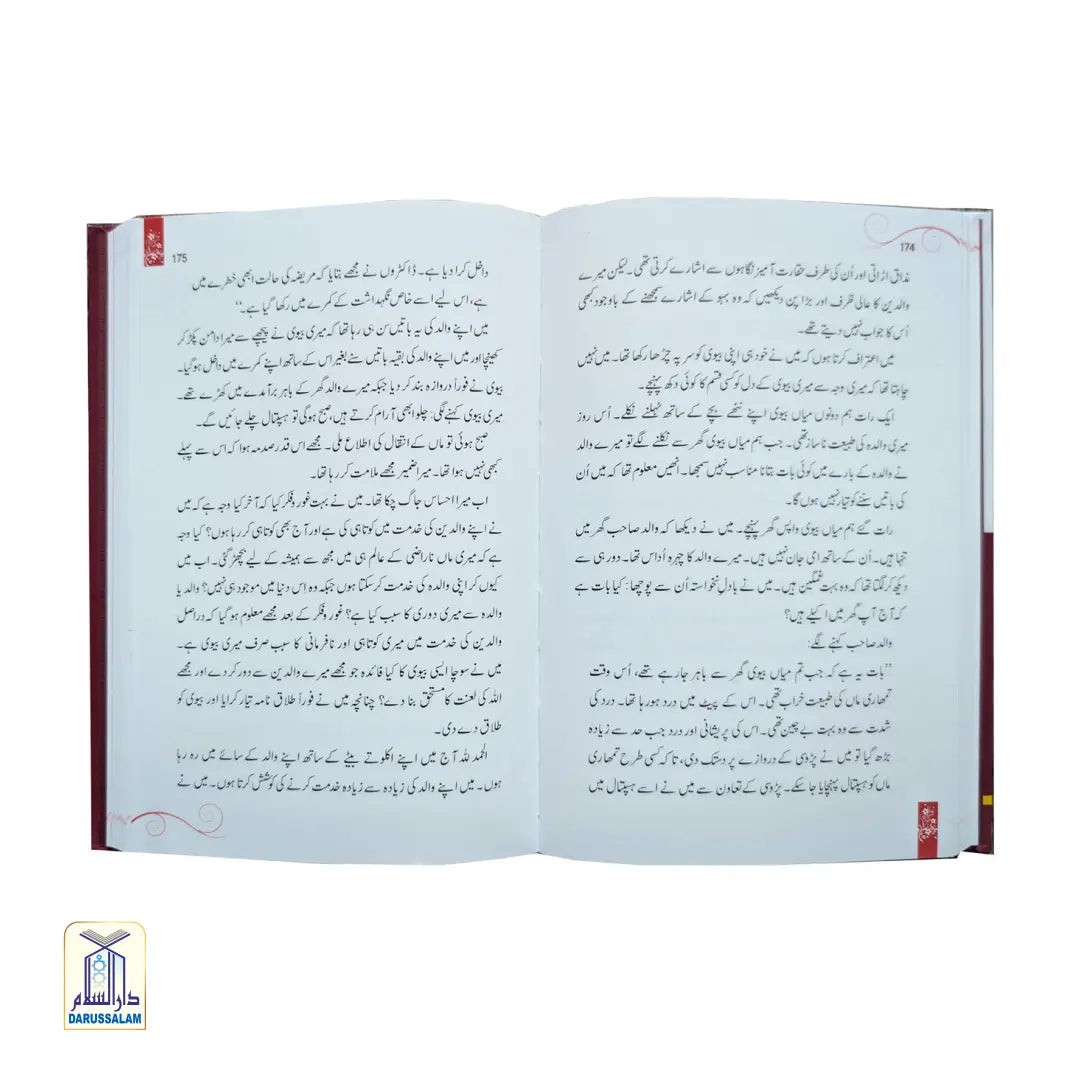 174
مذاق اڑاتی اور اُن کی طرف حقارت آمیز نگاہوں سے اشارے کرتی تھی۔ لیکن میرے
والدین کا عالی ظرف اور بڑا پن دیکھیں کہ وہ بہو کے اشارے سمجھنے کے باوجود کبھی
اُس کا جواب نہیں دیتے تھے۔
میں اعتراف کرتا ہوں کہ میں نے خود ہی اپنی بیوی کو سر پہ چڑھا رکھا تھا۔ میں نہیں
چاہتا تھا کہ میری وجہ سے میری بیوی کے دل کو کسی قسم کا کوئی دکھ پہنچے۔
ایک رات ہم دونوں میاں بیوی اپنے ننھے بچے کے ساتھ ٹہلنے نکلے۔ اُس روز
میری والدہ کی طبیعت ناساز تھی۔ جب ہم میاں بیوی گھر سے نکلنے لگے تو میرے والد
نے والدہ کے بارے میں کوئی بات بتانا مناسب نہیں سمجھا۔ انھیں معلوم تھا کہ میں اُن
کی باتیں سننے کو تیار نہیں ہوں گا۔
رات گئے ہم میاں بیوی واپس گھر پہنچے۔ میں نے دیکھا کہ والد صاحب گھر میں
تنہا ہیں۔ اُن کے ساتھ امی جان نہیں ہیں۔ میرے والد کا چہرہ اُداس تھا۔ دور ہی سے
دیکھ کر لگتا تھا کہ وہ بہت غمگین ہیں۔ میں نے بادلِ نخواستہ اُن سے پوچھا: کیا بات ہے
کہ آج آپ گھر میں اکیلے ہیں؟
والد صاحب کہنے لگے:
”بات یہ ہے کہ جب تم میاں بیوی گھر سے باہر جارہے تھے، اُس وقت
تمھاری ماں کی طبیعت خراب تھی۔ اس کے پیٹ میں درد ہورہا تھا۔ درد کی
شدت سے وہ بہت بے چین تھی۔ اس کی پریشانی اور درد جب حد سے زیادہ
بڑھ گیا تو میں نے پڑوسی کے دروازے پر دستک دی، تاکہ کسی طرح تمھاری
ماں کو ہسپتال پہنچایا جاسکے۔ پڑوسی کے تعاون سے میں نے اسے ہسپتال میں
175
داخل کرا دیا ہے۔ ڈاکٹروں نے مجھے بتایا کہ مریضہ کی حالت ابھی خطرے میں
ہے، اس لیے اسے خاص نگہداشت کے کمرے میں رکھا گیا ہے۔“
میں اپنے والد کی یہ باتیں سن ہی رہا تھا کہ میری بیوی نے پیچھے سے میرا دامن پکڑ کر
کھینچا اور میں اپنے والد کی بقیہ باتیں سنے بغیر اس کے ساتھ اپنے کمرے میں داخل ہو گیا۔
بیوی نے فوراً دروازہ بند کر دیا جبکہ میرے والد گھر کے باہر برآمدے میں کھڑے تھے۔
میری بیوی کہنے لگی: چلو ابھی آرام کرتے ہیں، صبح ہوگی تو ہسپتال چلے جائیں گے۔
صبح ہوئی تو ماں کے انتقال کی اطلاع ملی۔ مجھے اس قدر صدمہ ہوا کہ اس سے پہلے
کبھی نہیں ہوا تھا۔ میرا ضمیر مجھے ملامت کر رہا تھا۔
اب میرا احساس جاگ چکا تھا۔ میں نے بہت غور و فکر کیا کہ آخر کیا وجہ ہے کہ میں
نے اپنے والدین کی خدمت میں کوتاہی کی ہے اور آج بھی کوتاہی کر رہا ہوں؟ کیا وجہ
ہے کہ میری ماں ناراضی کے عالم ہی میں مجھ سے ہمیشہ کے لیے بچھڑ گئی۔ اب میں
کیوں کر اپنی والدہ کی خدمت کر سکتا ہوں جبکہ وہ اس دنیا میں موجود ہی نہیں؟ والد یا
والدہ سے میری دوری کا سبب کیا ہے؟ غور و فکر کے بعد مجھے معلوم ہو گیا کہ دراصل
والدین کی خدمت میں میری کوتاہی اور نافرمانی کا سبب صرف میری بیوی ہے۔
میں نے سوچا ایسی بیوی کا کیا فائدہ جو مجھے میرے والدین سے دور کر دے اور مجھے
اللہ کی لعنت کا مستحق بنا دے؟ چنانچہ میں نے فوراً طلاق نامہ تیار کرایا اور بیوی کو
طلاق دے دی۔
الحمد للہ آج میں اپنے اکلوتے بیٹے کے ساتھ اپنے والد کے سائے میں رہ رہا
ہوں۔ میں اپنے والد کی زیادہ سے زیادہ خدمت کرنے کی کوشش کرتا ہوں۔ میں نے
دارالسلام
DARUSSALAM